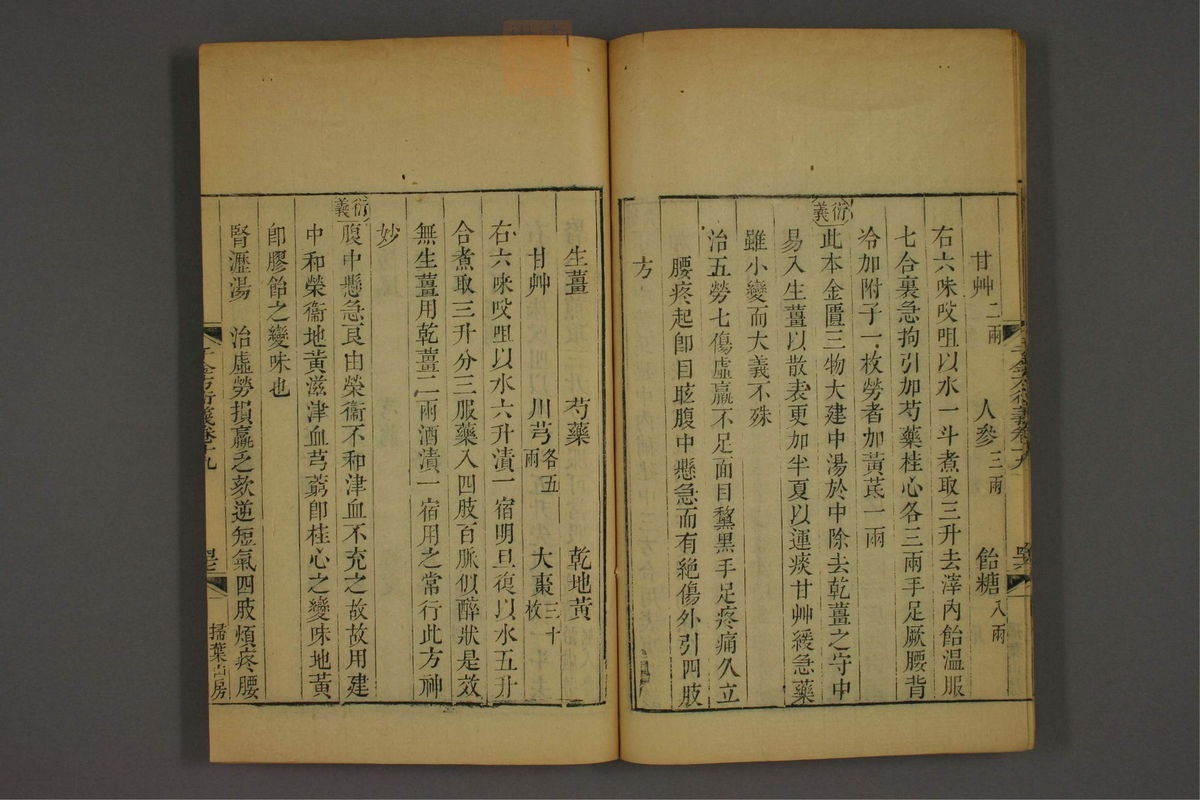 甘艸二兩 人參三兩 飴糖八兩
右六味㕮咀以水一斗煮取三升去滓內飴溫服
七合裏急拘引加芍藥桂心各三兩手足厥腰背
冷加附子一枚勞者加黃芪一兩
衍義
此本金匱三物大建中湯於中除去乾薑之守中
易入生薑以散表更加半夏以運痰甘艸緩急藥
雖小變而大義不殊
治五勞七傷虛羸不足面目黧黑手足疼痛久立
腰疼起卽目眩腹中懸急而有絕傷外引四肢
方
生薑 芍藥 乾地黃
甘艸 川芎各五兩 大棗三十枚
右六味㕮咀以水六升漬一宿明旦復以水五升
合煮取三升分三服藥入四肢百脈似醉狀是效
無生薑用乾薑二兩酒漬一宿用之常行此方神
妙
衍義
腹中懸急良由榮衞不和津血不充之故故用建
中和榮衞地黃滋津血芎藭卽桂心之變味地黃
卽膠飴之變味也
腎瀝湯 治虛勞損羸乏欬逆短氣四肢煩疼腰
千金方衍義卷十九
掃葉山房